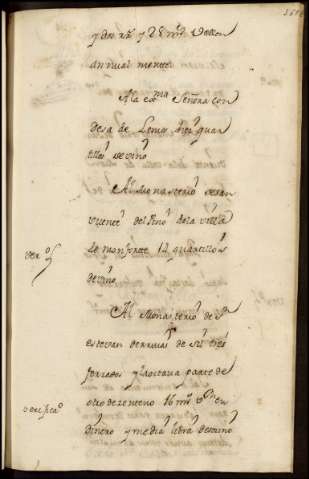 y dos rs y 28 mrs Vellon
annualmente
A la exma Señora Con
desa de Lemos diez quar
tillos de vino
Al Monasterio de San
Vicente del Pino de la villa
de Monforte 14 quartillos
de vino
Al Monasterio de Sn
Estevan de rivas de Sil tres
ferrados y la octava parte de
otro de zenteno 16 mrs Vn en
dinero y media libra de